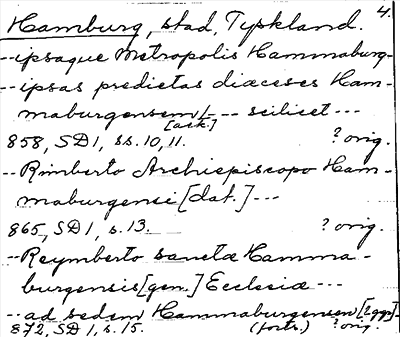 4.
Hamburg, stad, Tyskland.
--ipsaque Metropolis Hammaburg-
--ipsas predictas diæceses Ham-
maburgensem/--- scilicet---
[ack.]
858, SD1, ss. 10, 11. ? orig.
--Rimberto Archiepiscopo Ham-
maburgensi [dat.]---
865, SD1, s. 13. ? orig.
--Reymberto sanctæ Hamma-
burgensis [gen.] Ecclesiæ---
--ad sedem Hammaburgensem [2ggr]-
872, SD1, s. 15. (forts.) ? orig.